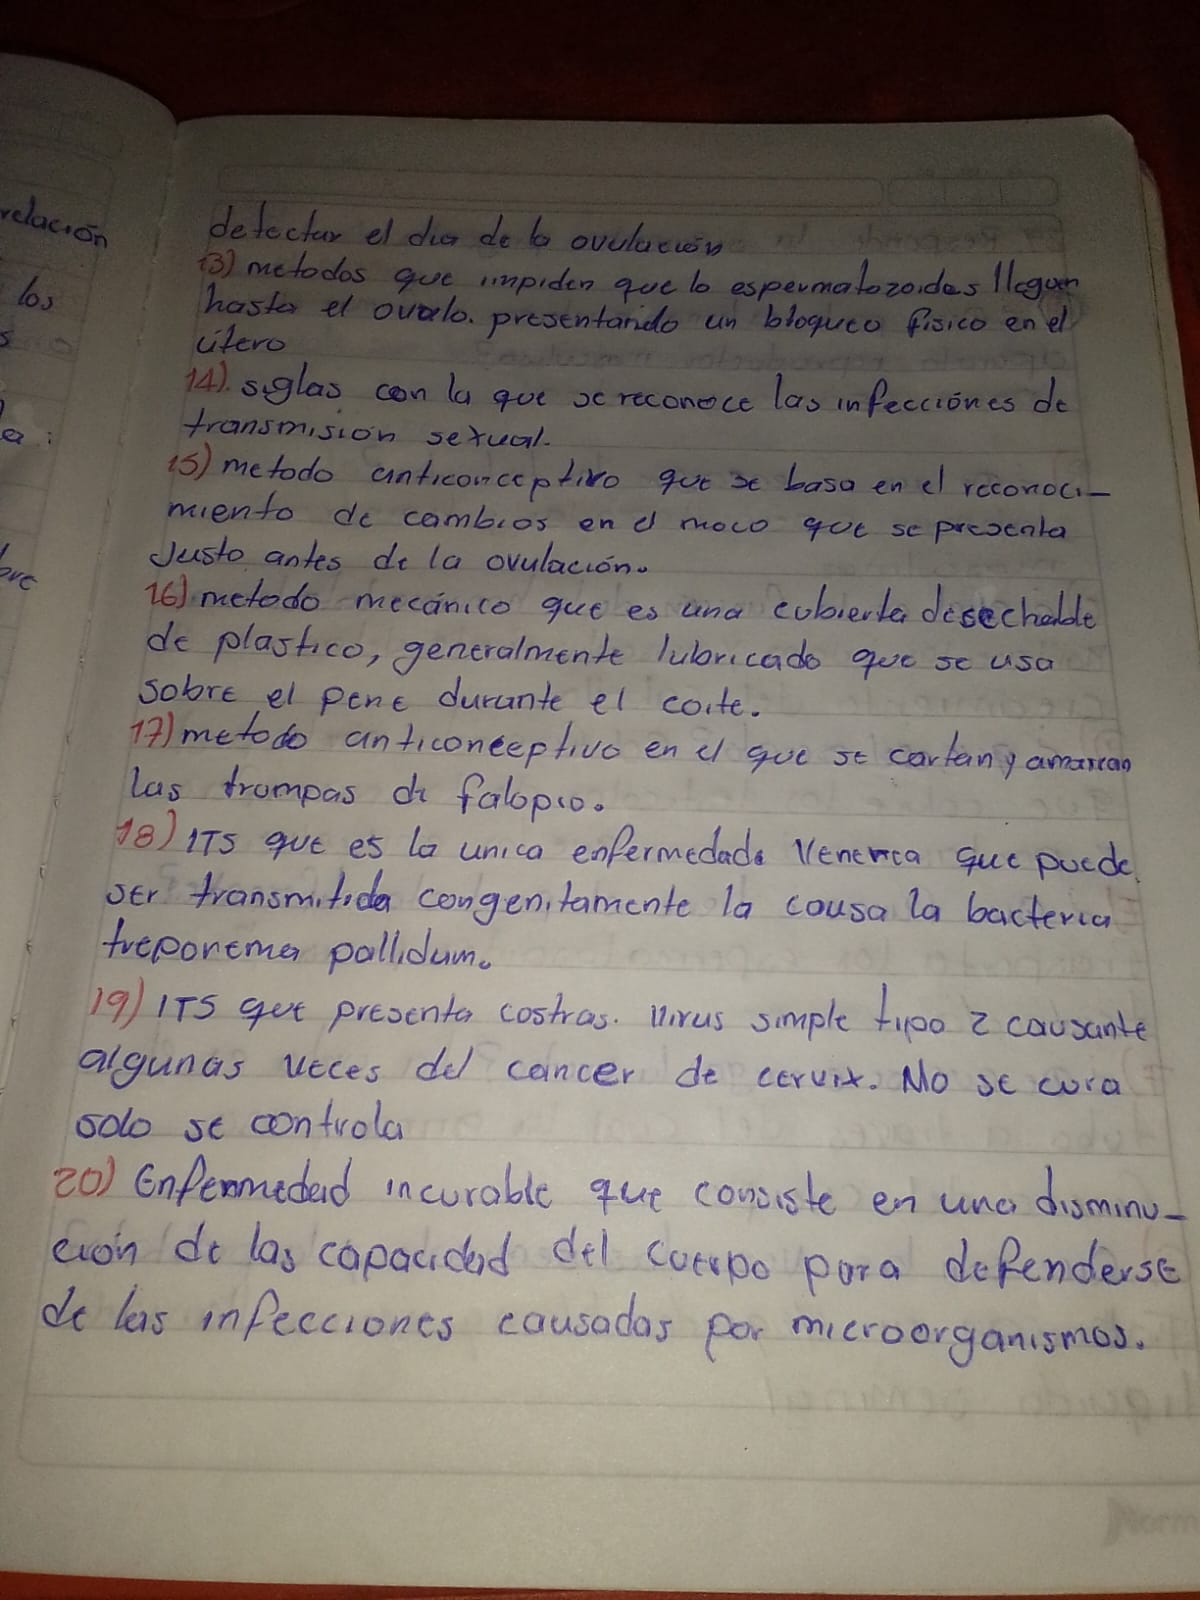 relación
los
s
a :
bre
detectar el dia de la ovulación
13) metodos que impiden que lo espermatozoides lleguen
hasta el ovulo. presentando un bloqueo fisico en el
útero
14). siglas con la que se reconoce las infecciónes de
transmisión sexual.
15) metodo anticonceptivo que se basa en el reconoci-
miento de cambios en el moco que se presenta
Justo antes de la ovulación.
16) metodo mecánico que es una cubierta desechable
de plastico, generalmente lubricado que se usa
sobre el pene durante el coite.
17) metodo anticonceptivo en el que se cortan y amarran
las trompas de falopio.
18) ITS que es la unica enfermedade Venerea que puede
ser transmitida congenitamente la causa la bacteria
treponema pallidum.
19) ITS que presenta costras. Virus simple tipo 2 causante
algunas veces del cancer de cervix. No se cura
solo se controla
20) Enfermedad incurable que consiste en una disminu-
ción de las capacidad del cuerpo para defenderse
de las infecciones causadas por microorganismos.
Norm